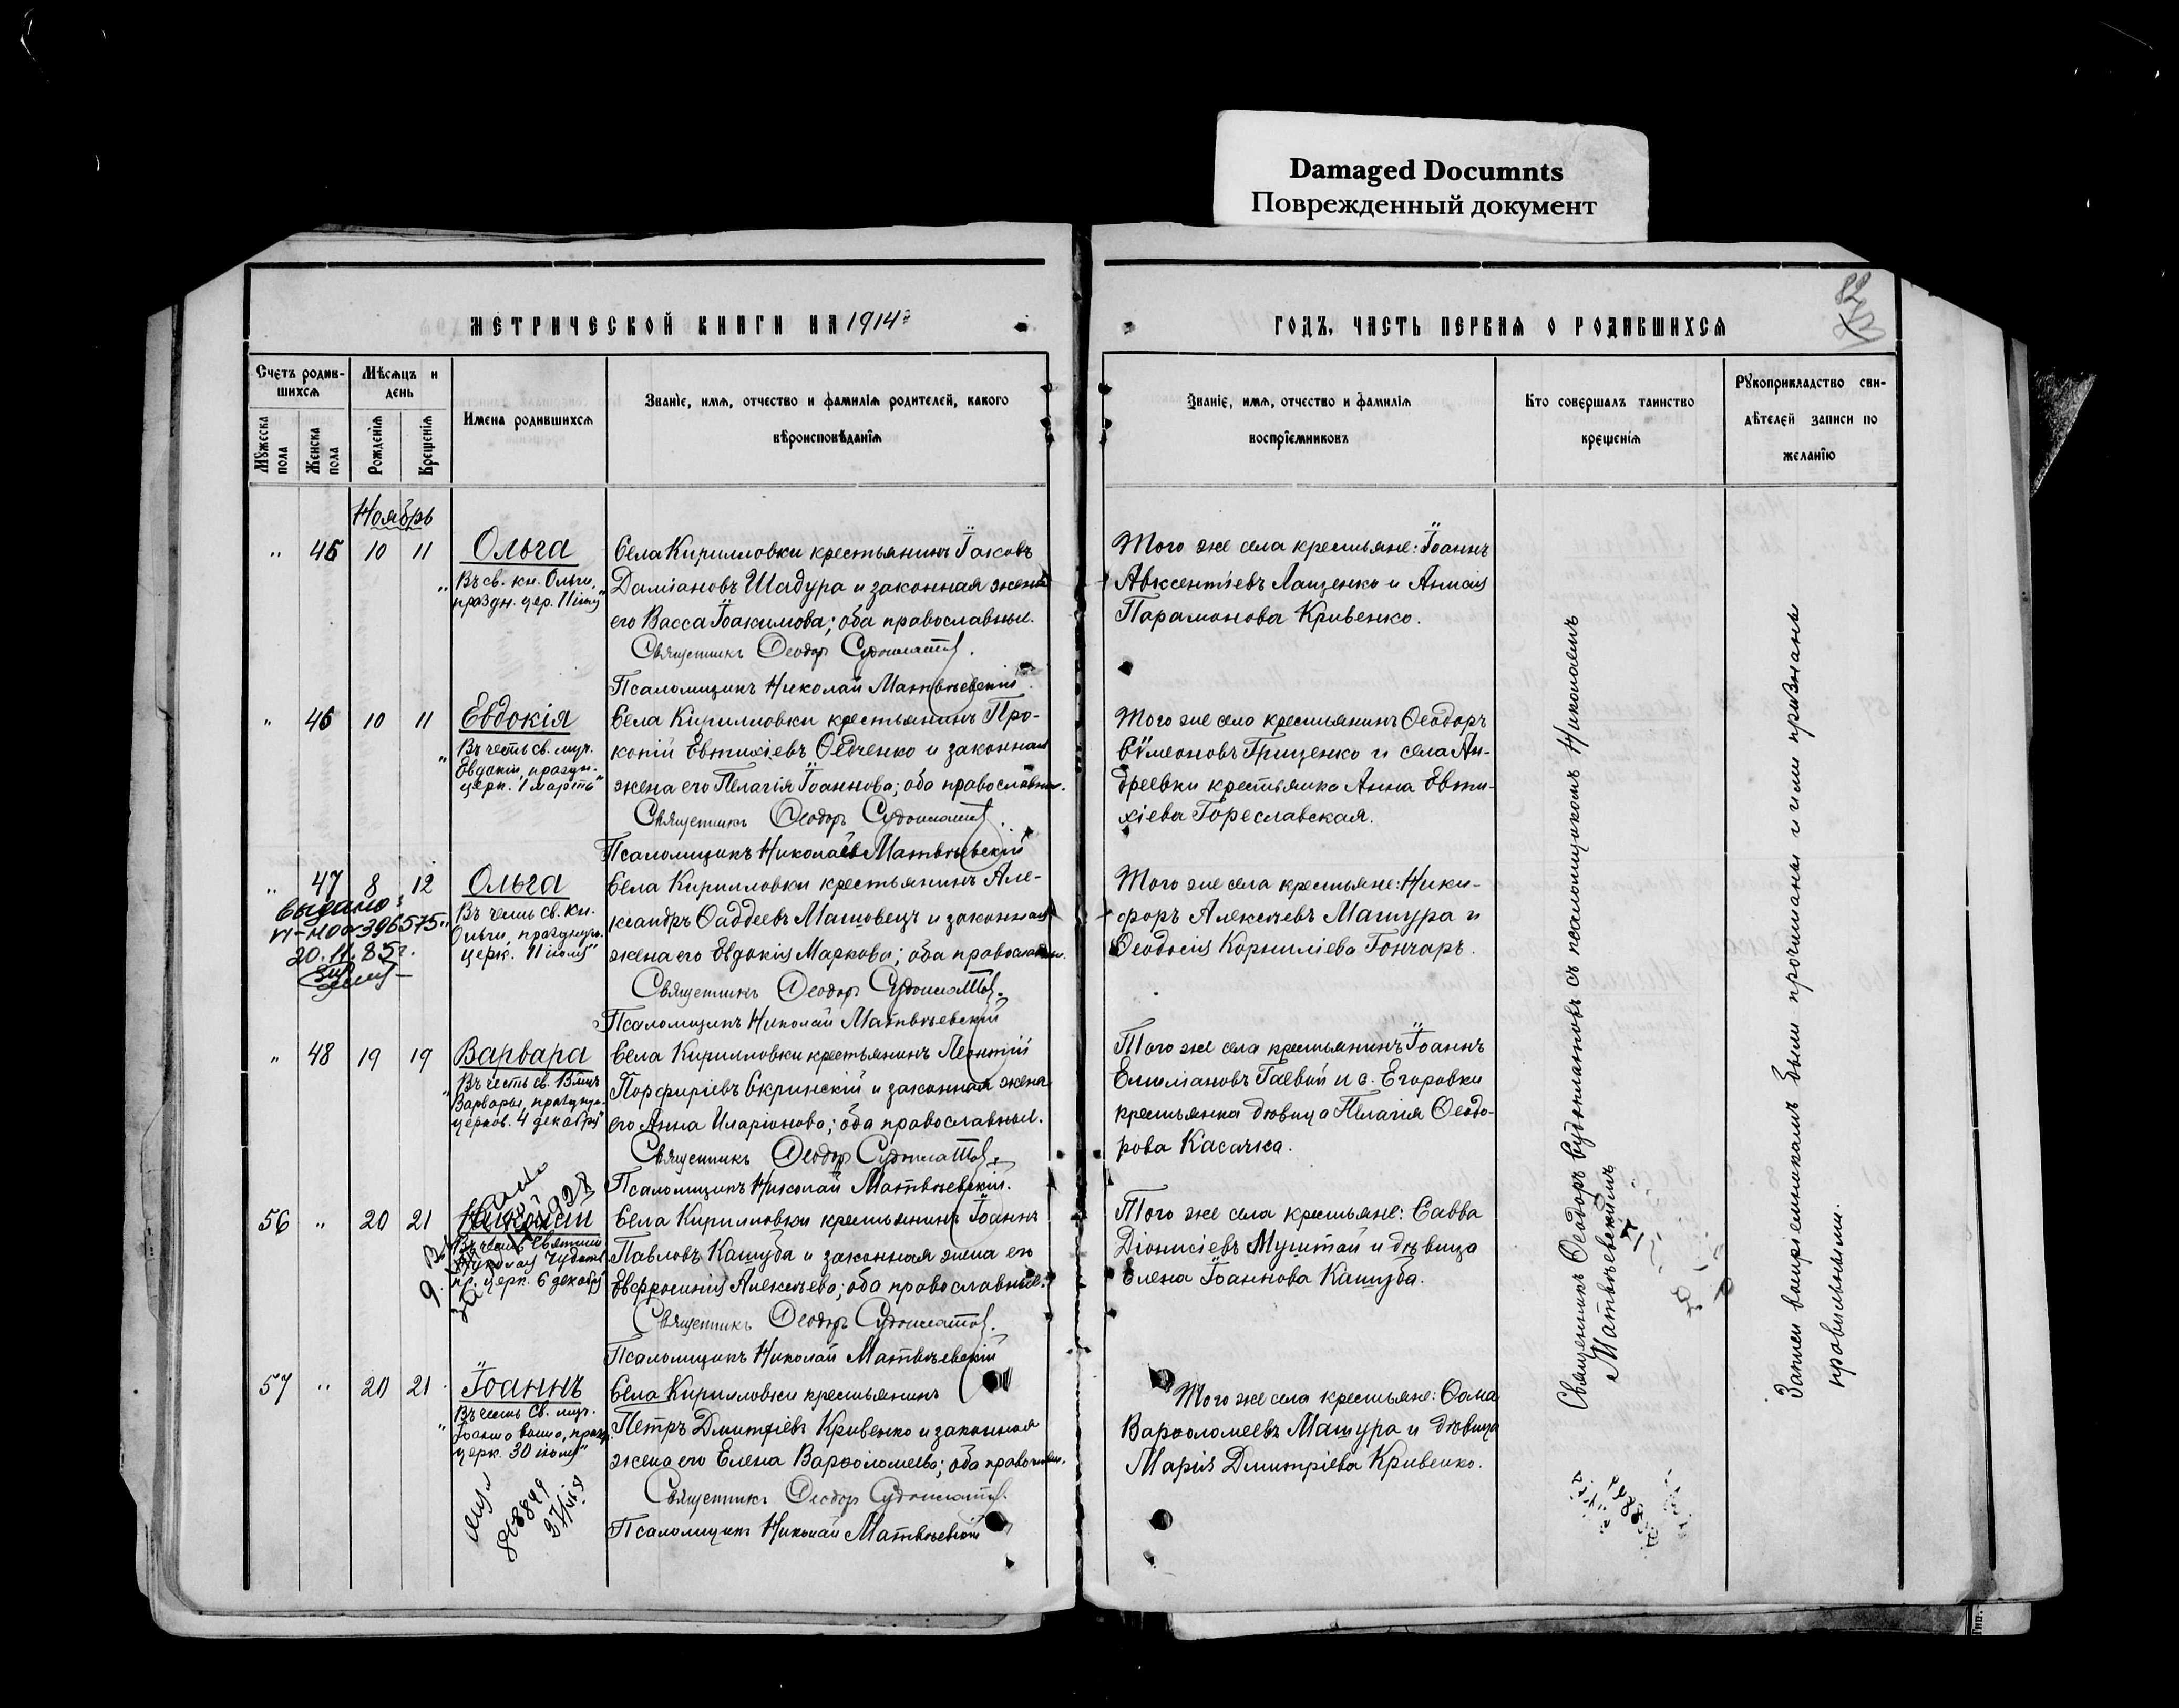 Damaged Documnts
Поврежденный документ
МЕТРИЧЕСКОЙ КНИГИ НА 1914 г
ГОДЪ, ЧАСТЬ ПЕРВАЯ О РОДИВШИХСЯ
Счетъ родив-
шихся
Мѣсяцъ и
день
Мужеска
пола
Женска
пола
Рожденія
Крещенія
Имена родившихся
Званіе, имя, отчество и фамилія родителей, какого
вѣроисповѣданія
Званіе, имя, отчество и фамилія
воспріемниковъ
Кто совершалъ таинство
крещенія
Рукоприкладство сви-
дѣтелей записи по
желанію
Ноябрь
" 45 10 11 Ольга
Въ св. кн. Ольги,
праздн. цер. 11 іюля"
Села Кирилловки крестьянинъ Іаковъ
Даміановъ Шадура и законная жена
его Васса Іоакимова; оба православные.
Священникъ Ѳеодоръ Судоплатовъ.
Псаломщикъ Николай Матвѣевскій.
Того же села крестьяне: Іоаннъ
Авксентіевъ Лащенко и Анисія
Парамонова Кривенко.
" 46 10 11 Евдокія
Въ честь св. муч.
Евдокіи, праздн.
церк. 1 марта"
Села Кирилловки крестьянинъ Про-
копій Евтихіевъ Ѳедченко и законная
жена его Пелагія Іоаннова; оба православные.
Священникъ Ѳеодоръ Судоплатовъ.
Псаломщикъ Николай Матвѣевскій
Того же села крестьянинъ Ѳеодоръ
Сѵмеоновъ Грищенко и села Ан-
дреевки крестьянка Анна Евти-
хіева Гореславская.
" 47 8 12 Ольга
Въ честь св. кн.
Ольги, празднуем.
церк. 11 іюля"
выдано:
396575
20.11.85г.
Села Кирилловки крестьянинъ Але-
ксандръ Ѳаддеевъ Машовецъ и законная
жена его Евдокія Маркова; оба православные.
Священникъ Ѳеодоръ Судоплатовъ.
Псаломщикъ Николай Матвѣевскій
Того же села крестьяне: Ники-
форъ Алексѣевъ Машура и
Ѳеодосія Корниліева Гончаръ.
" 48 19 19 Варвара
Въ честь св. Влмуч
Варвары, празднуе.
церков. 4 декабря"
Села Кирилловки крестьянинъ Леонтій
Порфиріевъ Скринскій и законная жена
его Анна Иларіонова; оба православные.
Священникъ Ѳеодоръ Судоплатовъ.
Псаломщикъ Николай Матвѣевскій.
Того же села крестьянинъ Іоаннъ
Емиліановъ Гаевой и с. Егоровки
крестьянка дѣвица Пелагія Ѳеодо-
рова Касачка.
56 " 20 21 Николай
Въ честь Святит.
Николая Чудотв.
пр. церк. 6 декабря
Села Кирилловки крестьянинъ Іоаннъ
Павловъ Кашуба и законная жена его
Евфросинія Алексѣева; оба православные.
Священникъ Ѳеодоръ Судоплатовъ.
Псаломщикъ Николай Матвѣевскій
Того же села крестьяне: Савва
Діонисіевъ Муштай и дѣвица
Елена Іоаннова Кашуба.
57 " 20 21 Іоаннъ
Въ честь Св. муч.
Іоанна воина, празд.
церк. 30 іюля"
868849
Села Кирилловки крестьянинъ
Петръ Дмитріевъ Кривенко и законная
жена его Елена Варѳоломеева; оба православн.
Священникъ Ѳеодоръ Судоплатовъ.
Псаломщикъ Николай Матвѣевскій
Того же села крестьяне: Ѳома
Варѳоломеевъ Машура и дѣвица
Марія Дмитріева Кривенко.
Священникъ Ѳеодоръ Судоплатовъ съ псаломщикомъ Николаемъ
Матвѣевскимъ
Записи воспріемникамъ были прочитаны и ими признаны
правильными.